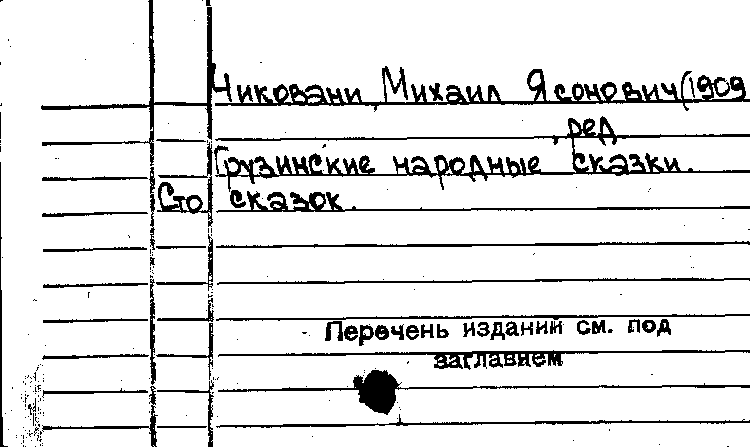 Чиковани, Михаил Ясонович (1909
, ред.
Грузинские народные сказки.
Сто сказок.
Перечень изданий см. под
заглавием